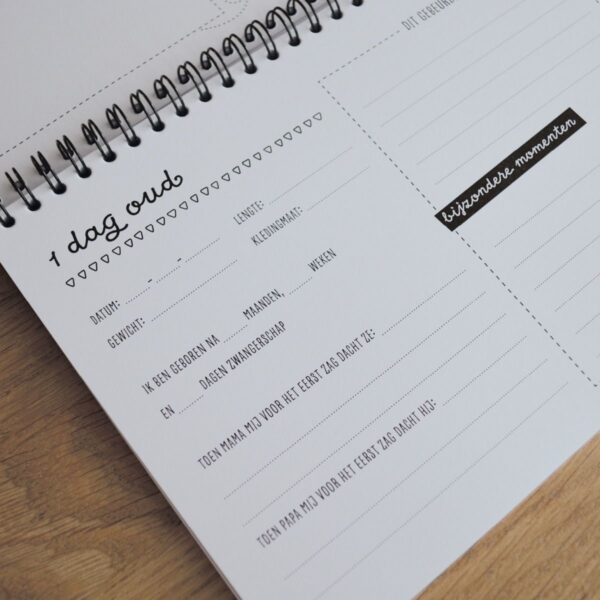 1 dag oud
DATUM: ...... - ...... - ......
LENGTE:
GEWICHT:
KLEDINGMAAT:
IK BEN GEBOREN NA ...... MAANDEN, ...... WEKEN
EN ...... DAGEN ZWANGERSCHAP
TOEN MAMA MIJ VOOR HET EERST ZAG DACHT ZE:
TOEN PAPA MIJ VOOR HET EERST ZAG DACHT HIJ:
DIT
bijzondere momenten